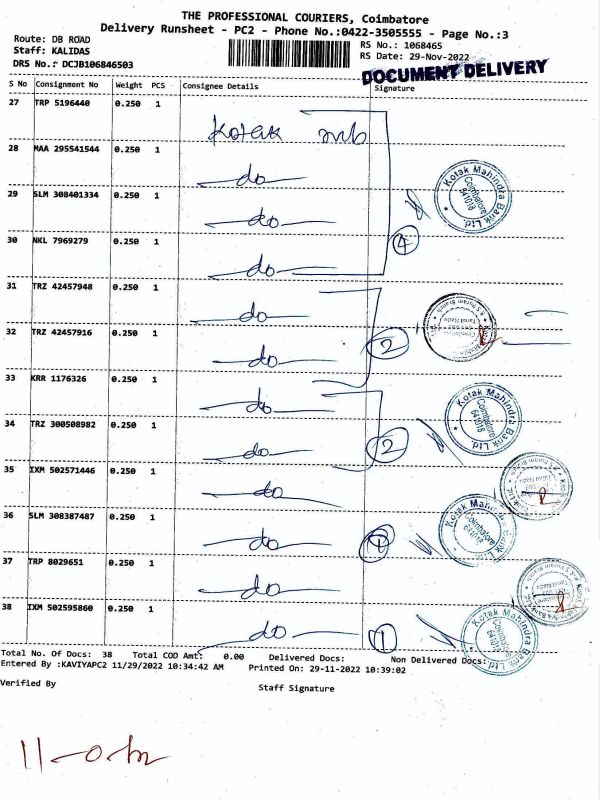 THE PROFESSIONAL COURIERS, Coimbatore
Delivery Runsheet - PC2 - Phone No.:0422-3505555 - Page No.:3
Route: DB ROAD
Staff: KALIDAS
DRS No.: DCJB106846503
RS No.: 1068465
RS Date: 29-Nov-2022
DOCUMENT DELIVERY
S No Consignment No Weight PCS Consignee Details Signature
27 TRP 5196440 0.250 1
Kotak mb
28 MAA 295541544 0.250 1
do
29 SLM 308401334 0.250 1
do
30 NKL 7969279 0.250 1
do
4
Kotak Mahindra Bank Ltd.
Coimbatore
641018
31 TRZ 42457948 0.250 1
do
32 TRZ 42457916 0.250 1
do
2
33 KRR 1176326 0.250 1
do
34 TRZ 300508982 0.250 1
do
2
Kotak Mahindra Bank Ltd.
Coimbatore
641018
35 IXM 502571446 0.250 1
do
36 SLM 308387487 0.250 1
do
1
Kotak Mahindra Bank Ltd.
Coimbatore
37 TRP 8029651 0.250 1
do
38 IXM 502595860 0.250 1
do
1
Kotak Mahindra Bank Ltd.
Coimbatore
641018
Total No. Of Docs: 38 Total COD Amt: 0.00 Delivered Docs: Non Delivered Docs:
Entered By :KAVIYAPC2 11/29/2022 10:34:42 AM Printed On: 29-11-2022 10:39:02
Verified By Staff Signature